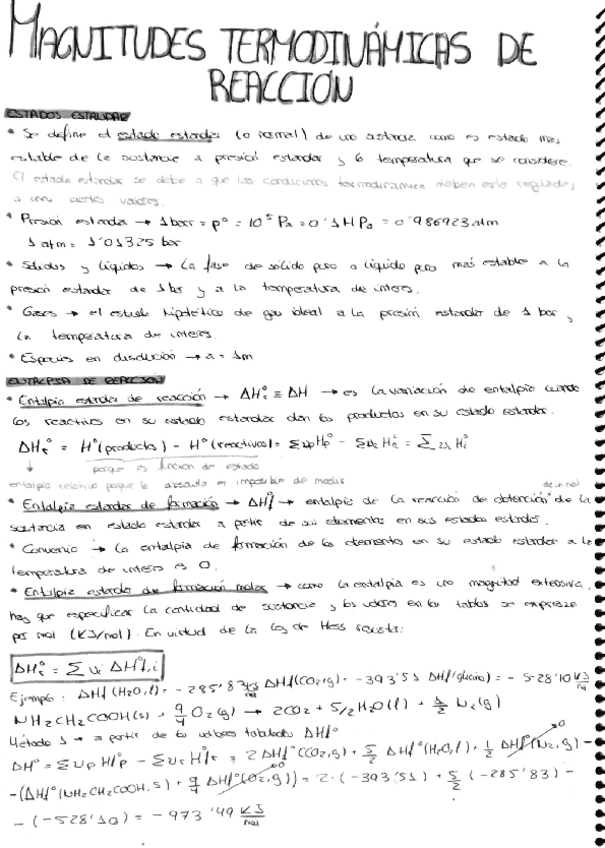 MAGNITUDES TERMODINÁMICAS DE
REACCIÓN
ESTADOS ESTANDAR
• Se define el estado estandar (o normal) de una sustancia como es estado mas
estable de la sustancia a presion estandar y la temperatura que se considere.
El estado estandar se debe a que las condiciones termodinamicas deben estar
a unos ciertos valores.
• Presion estandar → 1 bar = p° = 10⁵ Pa = 0'1 MPa = 0'986923 atm
1 atm = 1'01325 bar
• Sólidos y líquidos → la fase de sólido puro o líquido puro mas estable a la
presion estandar de 1 bar y a la temperatura de interes.
• Gases → el estado hipotético de gas ideal a la presión estandar de 1 bar y
la temperatura de interes.
• Especies en disolución → a = 1m
ENTALPIA DE REACCION
• Entalpia estandar de reacción → ΔHr° ≡ ΔH → es la variación de entalpia cuando
los reactivos en su estado estandar dan los productos en su estado estandar.
ΔHr° = H°(productos) - H°(reactivos) = Συp Hp° - Συr Hr° = Σ υi Hi°
↓ porque es funcion de estado
entalpia relativa porque la absoluta es imposible de medir de un mol
• Entalpia estandar de formación → ΔHf° → entalpia de la reacción de obtención de la
sustancia en estado estandar a partir de sus elementos en sus estados estandar.
• Convenio → la entalpia de formación de los elementos en su estado estandar a la
temperatura de interes es 0.
• Entalpia estandar de formación molar → como la entalpia es una magnitud extensiva,
hay que especificar la cantidad de sustancia y los valores en las tablas se expresan
por mol (KJ/mol). En virtud de la ley de Hess
ΔHr° = Σ υi ΔHf,i°
Ejemplo: ΔHf(H2O,l) = -285'83 KJ/mol ΔHf(CO2,g) = -393'51 ΔHf(glicina) = -528'10 KJ/mol
NH2CH2COOH(s) + 9/4 O2(g) → 2CO2 + 5/2 H2O(l) + 1/2 N2(g)
Método 1 → a partir de los valores tabulados ΔHf°
ΔH° = Συp Hf°p - Συr Hf°r = 2ΔHf°(CO2,g) + 5/2 ΔHf°(H2O,l) + 1/2 ΔHf°(N2,g) →0 -
-(ΔHf°(NH2CH2COOH,s) + 9/4 ΔHf°(O2,g) →0) = 2·(-393'51) + 5/2 (-285'83) -
-(-528'10) = -973'49 KJ/mol